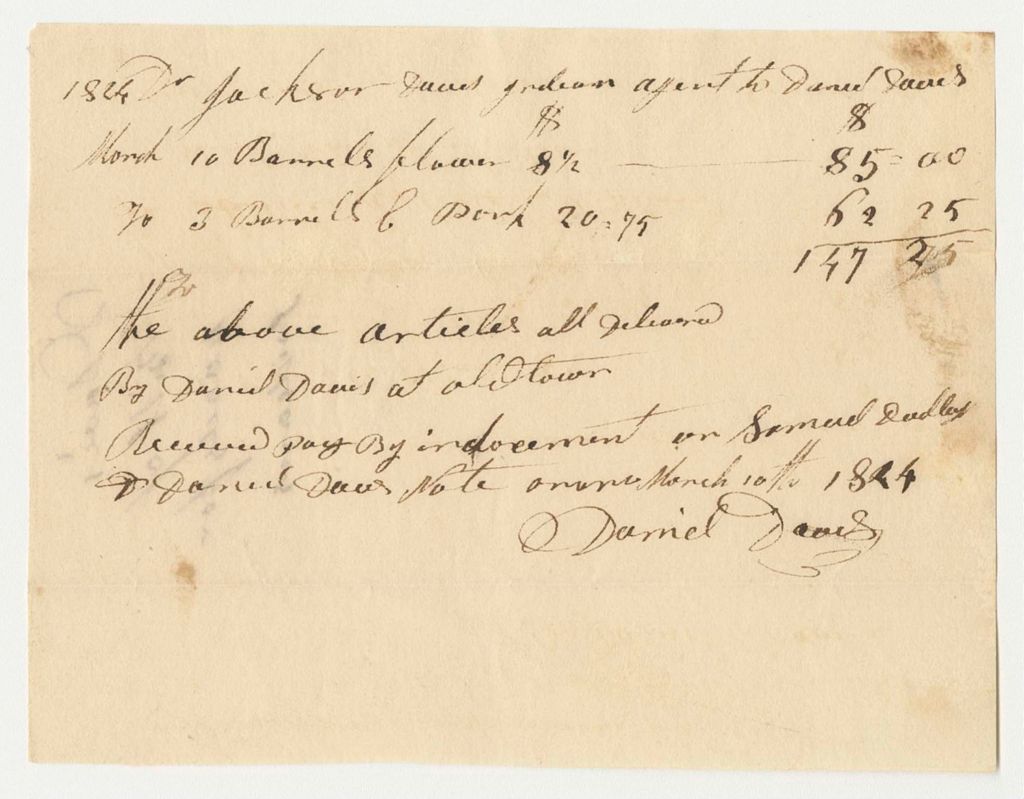 1824 Dr Jackson Davis indean agent to Daniel Davis
$ $
March 10 Barrels flower 8½ 85=00
To 3 Barrels C Pork 20=75 62 25
147 25
the above articles all Delivered
By Daniel Davis at old town
Received pay By indorcement on Samuel Dudley
& Daniel Davis Note March 10th 1824
Daniel Davis